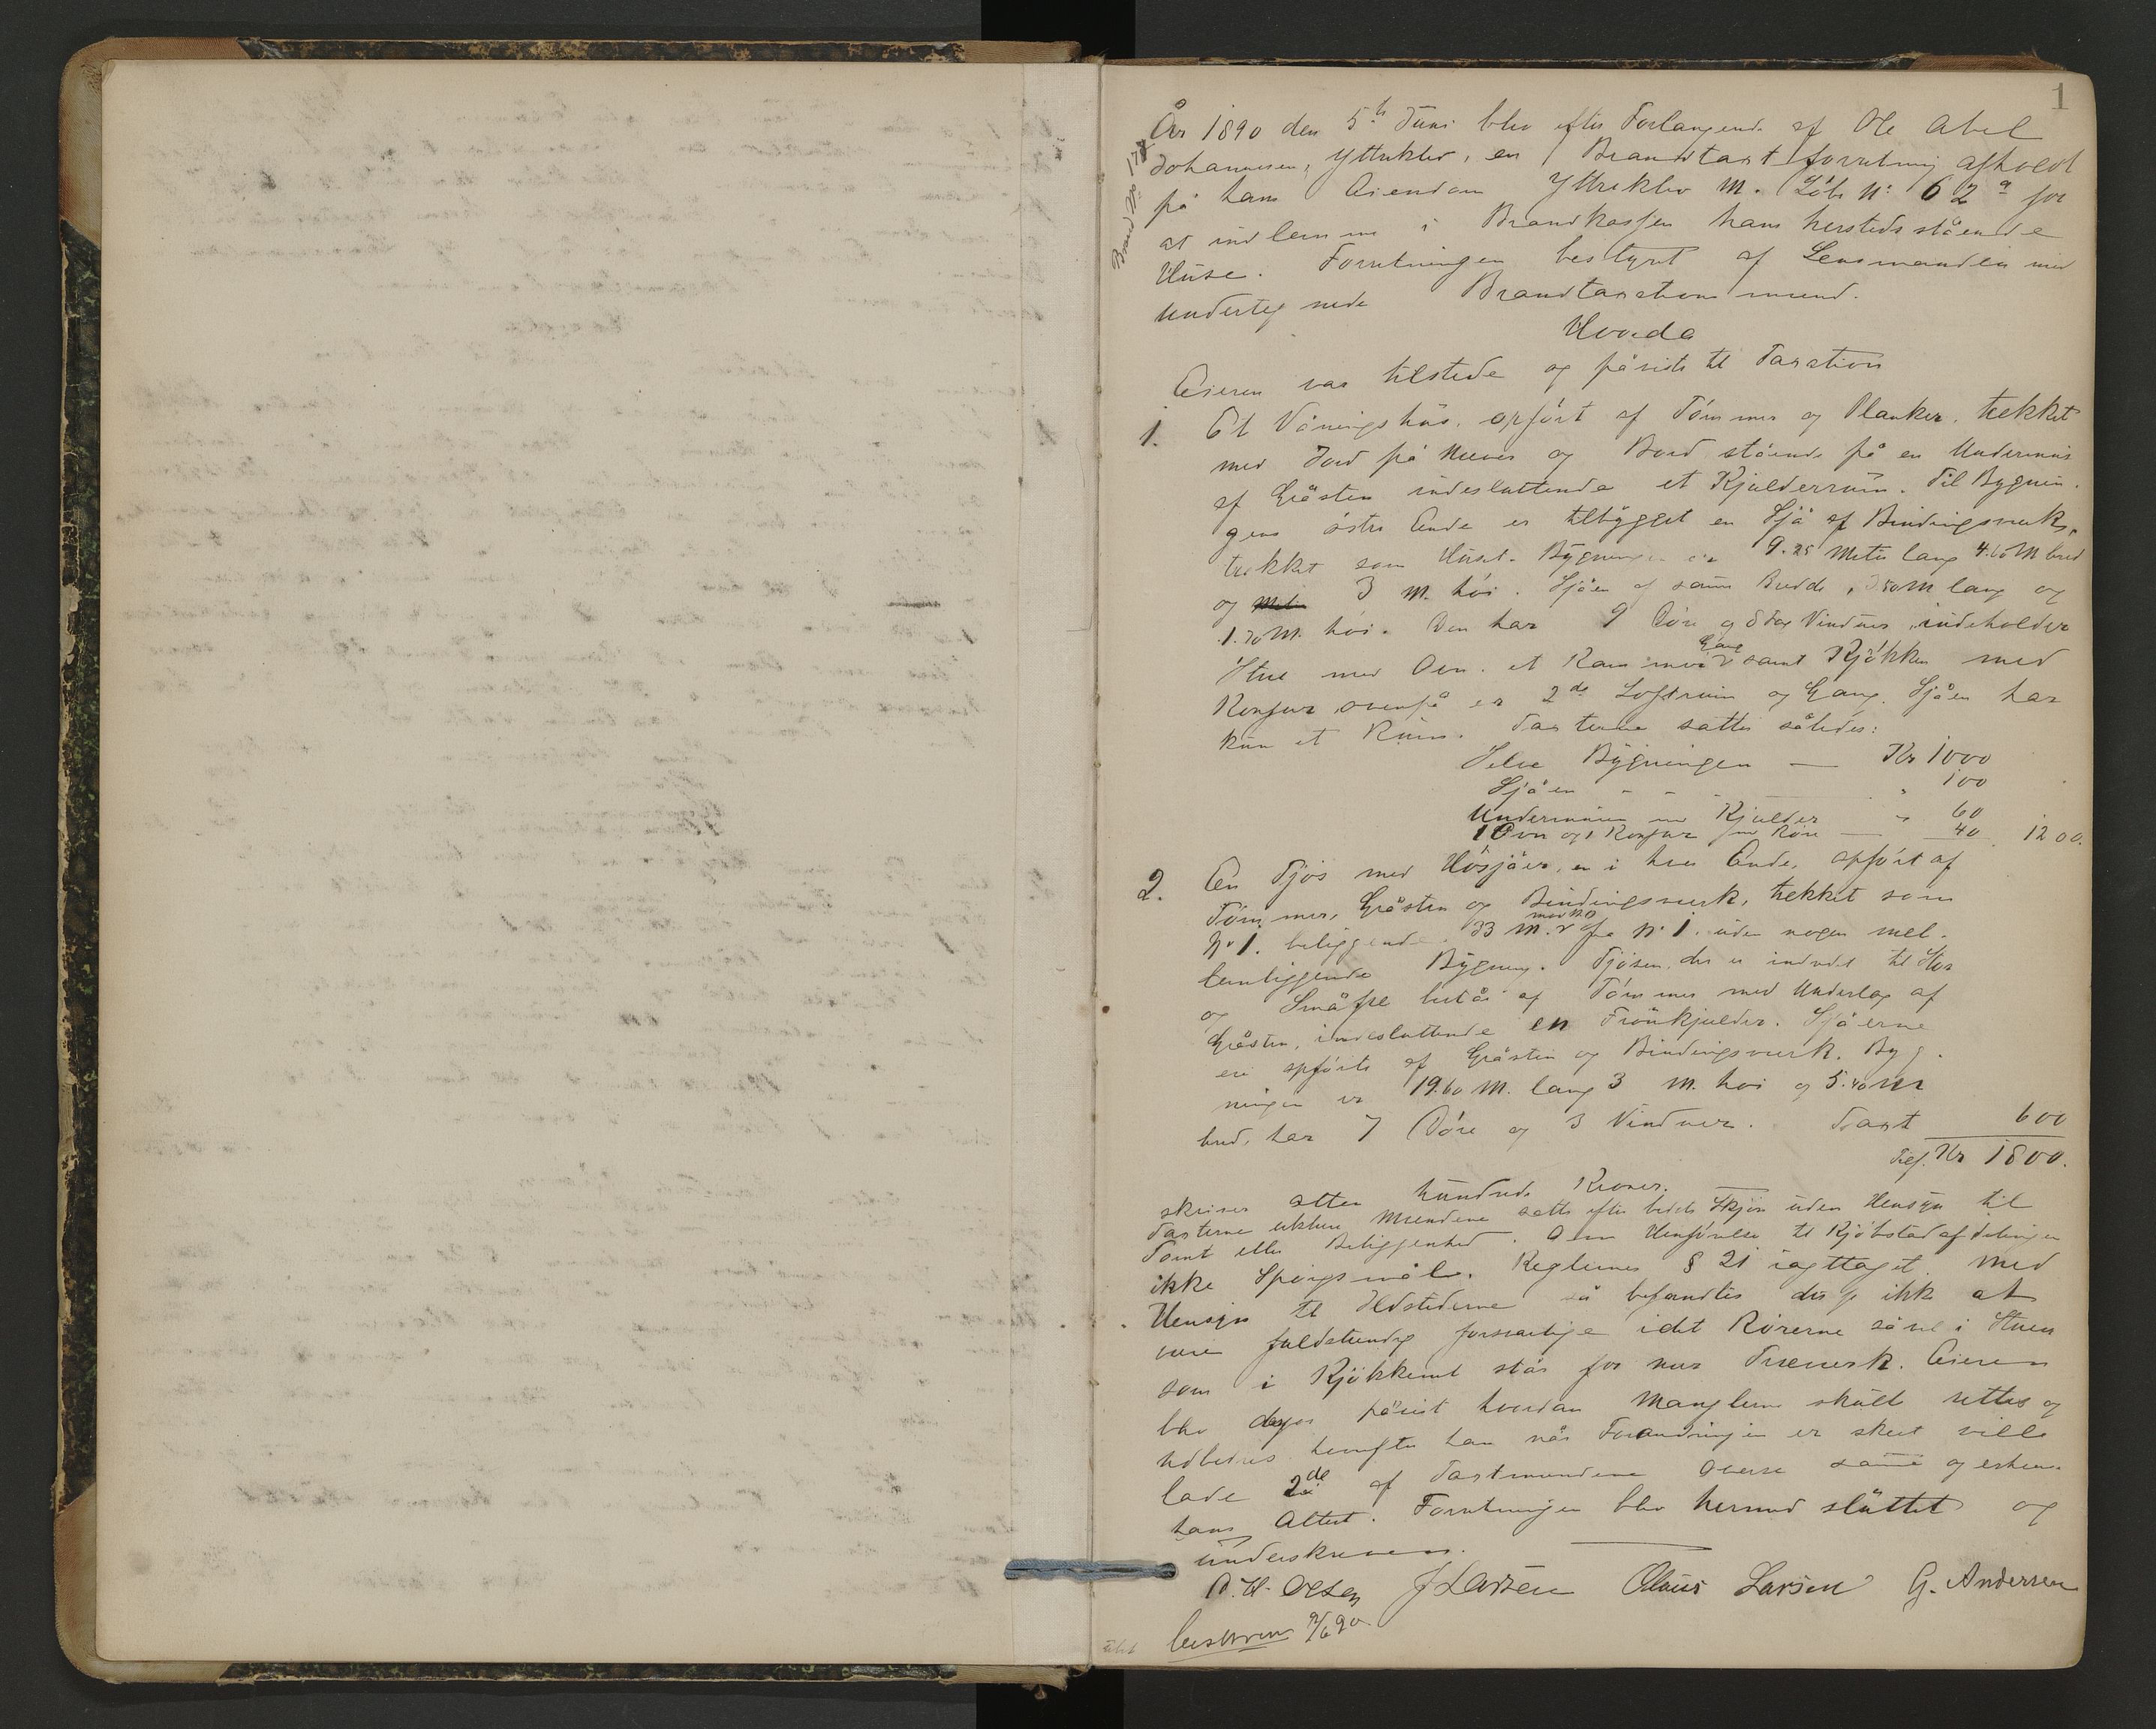 1
Brand No 178
År 1890 den 5te Juni blev efter Forlangende af Ole Abel
Johannesen, Yttreklev, en Brandtaxtforretning afholdt
på hans Eiendom Yttreklev M. Løbe No: 62a for
at indlemme i Brandkassen hans hersteds stående
Huse. Forretningen bestyret af Lensmanden med
undertegnede Brandtaxationsmænd.
Hvorda
Eieren var tilstede og påviste til Taxation
1. Et Våningshus, opført af Tømmer og Planker, tækket
med Jord på Næver og Bord stående på en Undermur
af Gråsten indesluttende et Kjælderrum. Til Bygnin-
gens østre Ende er tilbygget en Sjå af Bindingsværk,
tækket som Huset. Bygningen er 9.25 Meter lang 4.60 M bred
og 3 M. høi. Sjåen af samme Bredde, 3.50 M lang og
1.70 M. høi. Den har 9 Døre og 8 Fag Vinduer, indeholder
Stue med Ovn, et Kammer Gang samt Kjøkken med
Komfur, ovenpå er 2de Loftsrum og Gang. Sjåen har
kun et Rum. Taxterne sattes således:
Selve Bygningen — Kr 1000
Sjåen - - - " 100
Undermuren med Kjælder " 60
1 Ovn og 1 Komfur med Røre — 40 1200.
2. En Fjøs med Høsjåer, en i hver Ende, opført af
Tømmer, Gråsten og Bindingsværk, tækket som
No 1. beliggende 33 M. mod NO fra No 1. uden nogen mel-
lemliggende Bygning. Fjøsen, der er indredet til Stor
og Småfæ består af Tømmer med Underlag af
Gråsten, indesluttende en Frønkjælder. Sjåerne
ere opførte af Gråsten og Bindingsværk. Byg-
ningen er 19.60 M. lang 3 M. høi og 5.40 M
bred, har 7 Døre og 3 Vinduer. Taxt 600
Tils. Kr 1800.
skriver atten hundrede Kroner.
Taxterne erklære Mændene satte efter bedste Skjøn uden Hensyn til
Tomt eller Beliggenhed. Om Henførelse til Kjøbstadafdelingen
ikke Spørgsmål. Reglernes § 21 iagttaget. Med
Hensyn til Ildstederne så befandtes disse ikke at
være fuldstændig forsvarlige idet Rørerne såvel i Stuen
som i Kjøkkenet står for nær Træværk. Eieren
blev derfor påvist hvordan Manglerne skulle rettes og
udbedres hvorefter han når Forandringen er skeet ville
lade 2de af Taxtmændene overse samme og erhverve
hans Attest. Forretningen blev hermed sluttet og
underskreven.
O. H. Olsen J Larsen Olaus Larsen G. Andersen
Beskreven 9/6 90